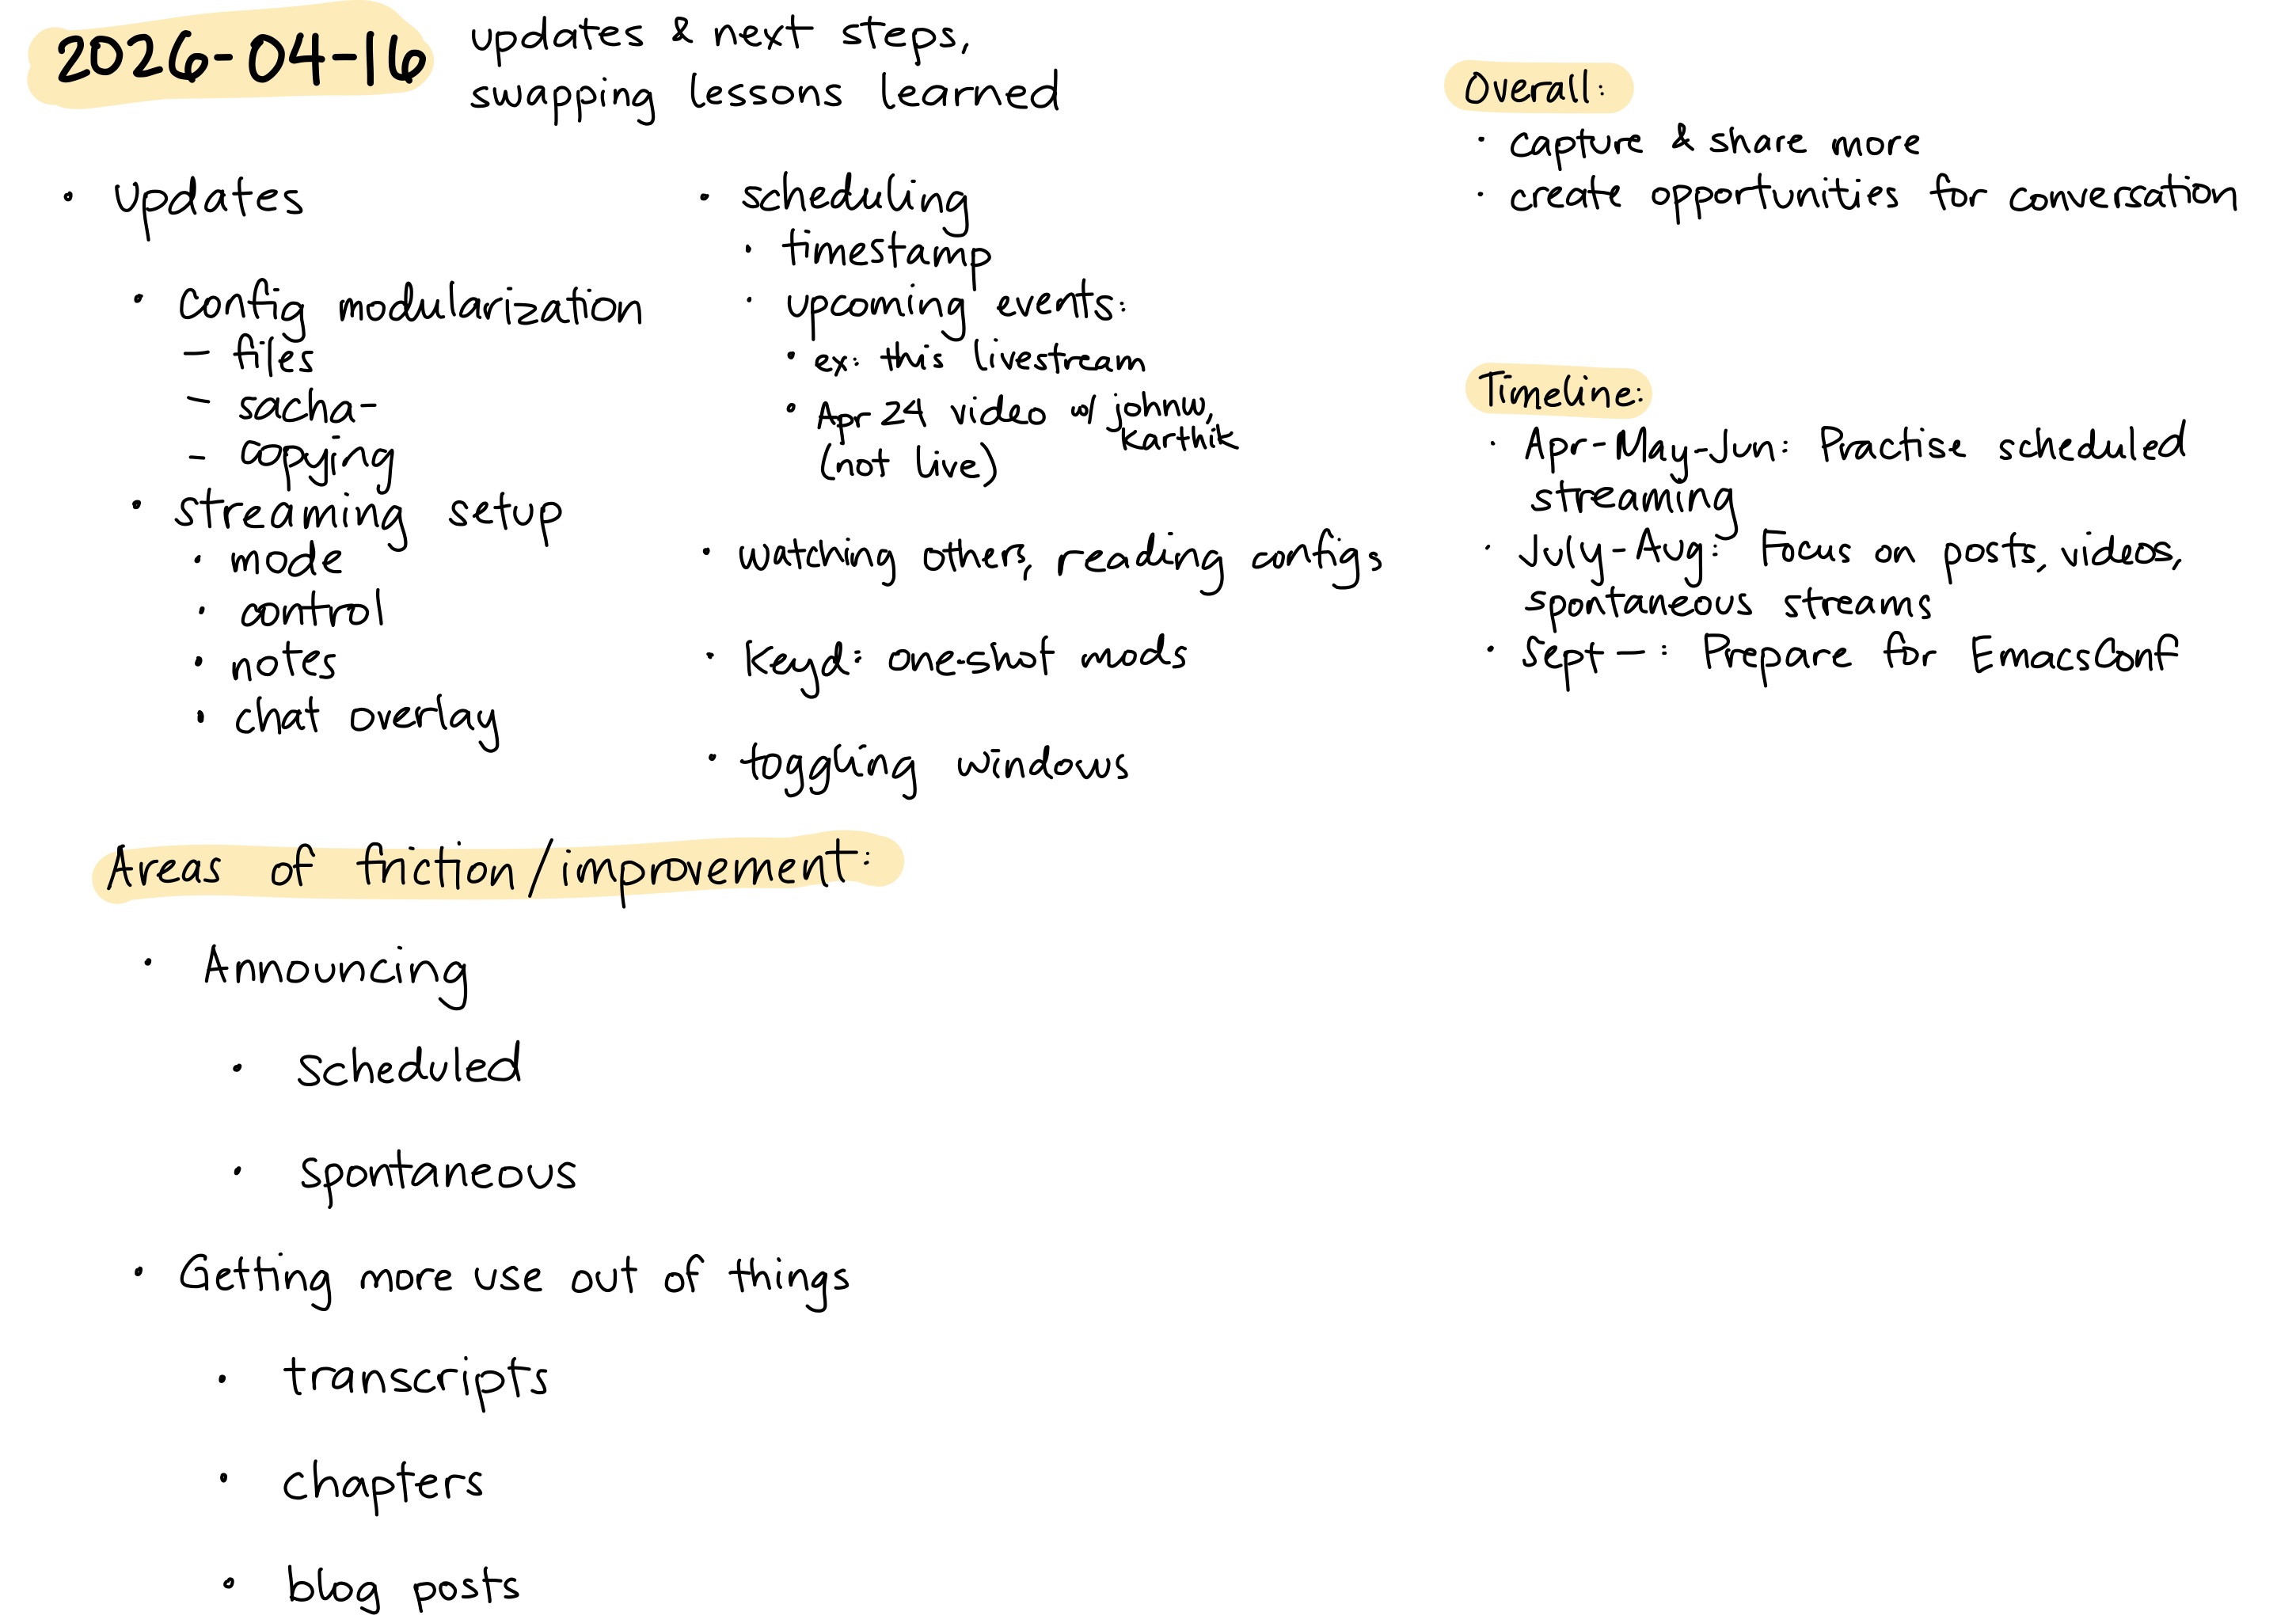 2026-04-16
updates & next steps,
swapping lessons learned
• updates
• config modularization
– files
– sacha-
– copying
• streaming setup
• mode
• control
• notes
• chat overlay
• scheduling
• timestamp
• upcoming events:
• ex: this livestream
• Apr 24 video w/ johnw,
karthik
(not live)
• watching others, reading configs
• keyd: one-shot mods
• toggling windows
Overall:
• capture & share more
• create opportunities for conversation
Timeline:
• Apr-May-Jun: Practise scheduled
streaming
• July-Aug: Focus on posts, videos,
spontaneous streams
• Sept —: Prepare for EmacsConf
Areas of friction/improvement:
• Announcing
• scheduled
• spontaneous
• Getting more use out of things
• transcripts
• chapters
• blog posts